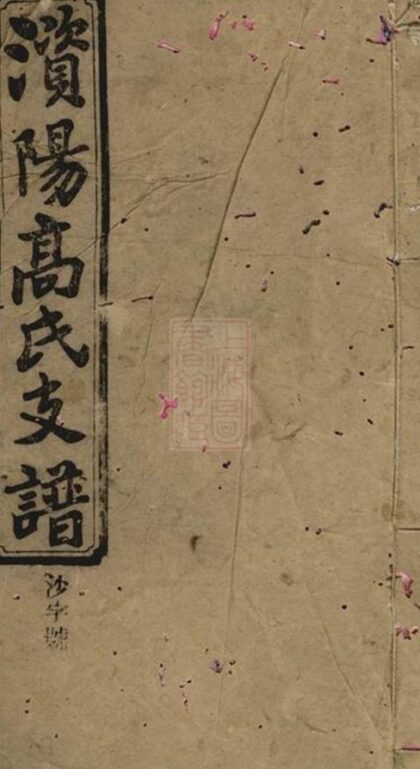 澬陽高氏支譜
沙字號